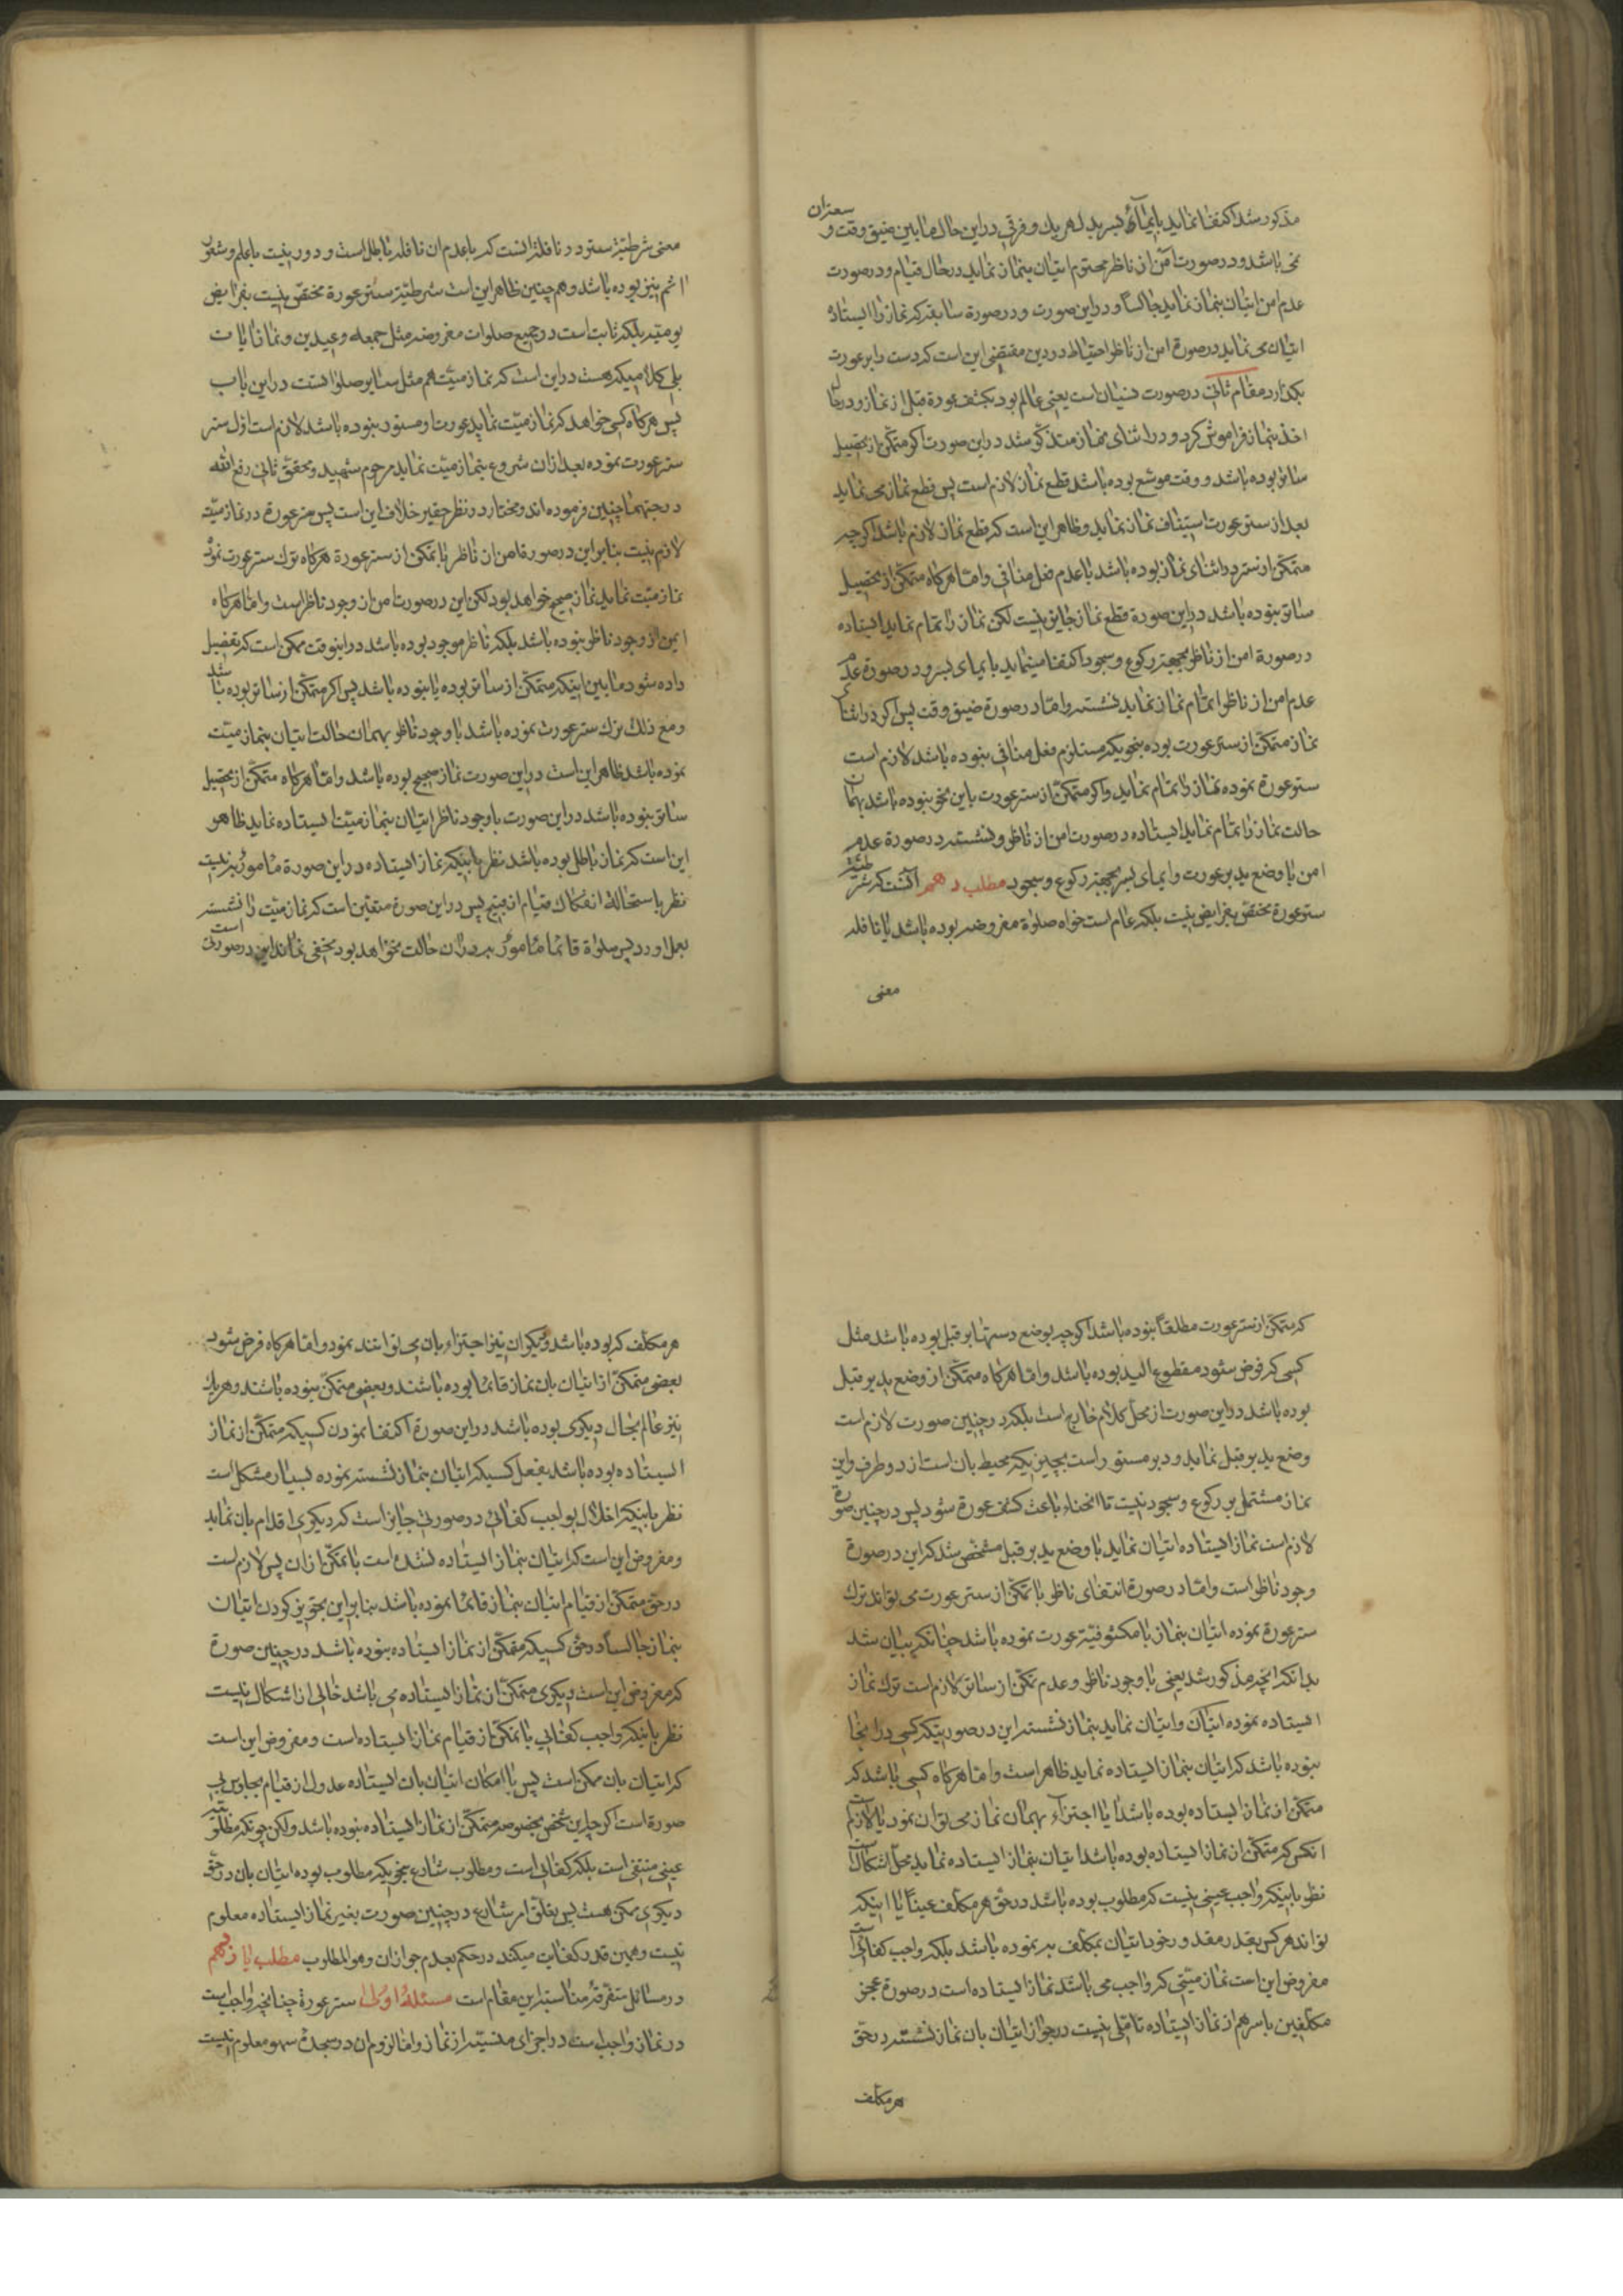 مذکور شد اکتفا نماید بایماء بسر بدل هر یک و فرقی در این حال مابین ضیق وقت و سعه آن
نمی باشد و در صورت امن از ناظر محترم اتیان بنماز نماید در حال قیام و در صورت
عدم امن اتیان بنماز نماید جالسا و در این صورت و در صورة سابقه که نماز را ایستاده
اتیان می نماید در صورة امن از ناظر احتیاط در دین مقتضی این است که دست را بر عورت
بگذارد مقام ثانی در صورت نسیان است یعنی عالم بود بکشف عورة قبل از نماز و در حال
اخذ بنماز فراموش کرد و در اثنای نماز متذکر شد در این صورت اگر متمکن از تحصیل
ساتر بوده باشد و وقت موسع بوده باشد قطع نماز لازم است پس قطع نماز می نماید
بعد از ستر عورت استیناف نماز نماید و ظاهر این است که قطع نماز لازم باشد اگر چه
متمکن از ستر در اثنای نماز بوده باشد با عدم فعل منافی و اما هرگاه متمکن از تحصیل
ساتر نبوده باشد در این صورة قطع نماز جایز نیست لکن نماز را تمام نماید ایستاده
در صورة امن از ناظر بجهة رکوع و سجود اکتفا مینماید بایمای بسر و در صورة عدم
عدم امن از ناظر اتمام نماز نماید نشسته و اما در صورة ضیق وقت پس اگر در اثنای
نماز متمکن از ستر عورت بوده بنحویکه مستلزم فعل منافی نبوده باشد لازم است
ستر عورة نموده نماز را تمام نماید و اگر متمکن از ستر عورت باین نحو نبوده باشد بهمان
حالت نماز را تمام نماید ایستاده در صورت امن از ناظر و نشسته در صورة عدم
امن با وضع ید بر عورت و ایمای بسر بجهة رکوع و سجود مطلب دهم آنست که شرطیة
ستر عورة مختص بفرایض نیست بلکه عام است خواه صلوة مفروضه بوده باشد یا نافله
معنی
معنی شرطیة ستر در نافله آنست که با عدم ان نافله باطل است و دور نیست با علم و شعور
اثم نیز بوده باشد و هم چنین ظاهر این است شرطیة ستر عورة مختص نیست بفرایض
یومیه بلکه ثابت است در جمیع صلوات مفروضه مثل جمعه و عیدین و نماز ایات
بلی کلامیکه هست در این است که نماز میت هم مثل سایر صلوات است در این باب
پس هرگاه کسی خواهد که نماز میت نماید عورت او مستور نبوده باشد لازم است اول ستر
ستر عورت نموده بعد از ان شروع بنماز میت نماید مرحوم شهید و محقق ثانی رفع الله
درجتهما چنین فرموده اند و مختار در نظر حقیر خلاف این است پس ستر عورة در نماز میت
لازم نیست بنا بر این در صورة امن از ناظر با تمکن از ستر عورة هرگاه ترک ستر عورت نموده
نماز میت نماید نماز صحیح خواهد بود لکن این در صورت امن از وجود ناظر است و اما هرگاه
ایمن از وجود ناظر نبوده باشد بلکه ناظر موجود بوده باشد در اینوقت ممکن است که تفصیل
داده شود مابین اینکه متمکن از ساتر بوده یا نبوده باشد پس اگر متمکن از ساتر بوده باشد
و مع ذلک ترک ستر عورت نموده باشد با وجود ناظر بهمان حالت اتیان بنماز میت
نموده باشد ظاهر این است در این صورت نماز صحیح بوده باشد و اما هرگاه متمکن از تحصیل
ساتر نبوده باشد در این صورت با وجود ناظر اتیان بنماز میت ایستاده نماید ظاهر
این است که نماز باطل بوده باشد نظر باینکه نماز ایستاده در این صورة مامور به نیست
نظر باستحالة انفکاک قیام از قبیح پس در این صورة متعین است که نماز میت را نشسته
بعمل اورد پس صلوة قائما مامور به در ان حالت نخواهد بود مخفی نماند این در صورتی است
که متمکن از ستر عورت مطلقا نبوده باشد اگر چه بوضع دستها بر قبل بوده باشد مثل
کسی که فرض شود مقطوع الید بوده باشد و اما هرگاه متمکن از وضع ید بر قبل
بوده باشد در این صورت از محل کلام خارج است بلکه در چنین صورت لازم است
وضع ید بر قبل نماید و دبر مستور است بچیزیکه محیط بان است از دو طرف و این
نماز مشتمل بر رکوع و سجود نیست تا انحناء باعث کشف عورة شود پس در چنین صورة
لازم است نماز ایستاده اتیان نماید با وضع ید بر قبل مشخص شد که این در صورة
وجود ناظر است و اما در صورة انتفای ناظر با تمکن از ستر عورت می تواند ترک
ستر عورة نموده اتیان بنماز با مکشوفیة عورت نموده باشد چنانکه بیان شد
بدانکه آنچه مذکور شد یعنی با وجود ناظر و عدم تمکن از ساتر لازم است ترک نماز
ایستاده نموده و اتیان نماید بنماز نشسته این در صورتیکه کسی در اینجا
نبوده باشد که اتیان بنماز ایستاده نماید ظاهر است و اما هرگاه کسی باشد که
متمکن از نماز ایستاده بوده باشد ایا اجتزاء بهمان نماز می توان نمود یا لازم است
انکس که متمکن از نماز ایستاده بوده باشد اتیان بنماز ایستاده نماید محل اشکال است
نظر باینکه واجب عینی نیست که مطلوب بوده باشد در حق هر مکلف عینا تا اینکه
تواند هر کس بقدر مقدور خود اتیان بمکلف به نموده باشد بلکه واجب کفائی است
مفروض این است نماز میتی که واجب می باشد نماز ایستاده است در صورة عجز
مکلفین باسرهم از نماز ایستاده تاملی نیست در جواز اتیان بان نماز نشسته در حق
هر مکلف
هر مکلف که بوده باشد و دیگران نیز اجتزاء بان می توانند نمود و اما هرگاه فرض شود
بعضی متمکن از اتیان بان نماز قائما بوده باشند و بعضی متمکن نبوده باشند و هر یک
نیز عالم بحال دیگری بوده باشد در این صورة اکتفا نمودن کسیکه متمکن از نماز
ایستاده بوده باشد بفعل کسیکه اتیان بنماز نشسته نموده بسیار مشکل است
نظر باینکه اخلال بواجب کفائی در صورتی جایز است که دیگری اقدام بان نماید
و مفروض این است که اتیان بنماز ایستاده نشده است با تمکن از ان پس لازم است
در حق متمکن از قیام اتیان بنماز قائما نموده باشد بنا بر این تجویز کردن اتیان
بنماز جالسا در حق کسیکه متمکن از نماز ایستاده نبوده باشد در چنین صورة
که مفروض این است دیگری متمکن از نماز ایستاده می باشد خالی از اشکال نیست
نظر باینکه واجب کفائی با تمکن از قیام نماز ایستاده است و مفروض این است
که اتیان بان ممکن است پس با امکان اتیان بان ایستاده عدول از قیام بجلوس بی
صورة است اگر چه این شخص بخصوصه متمکن از نماز ایستاده نبوده باشد ولکن چونکه مطلوبیة
عینی منتفی است بلکه کفائی است و مطلوب شارع بنحویکه مطلوب بوده اتیان بان در حق
دیگری ممکن هست پس تعلق امر شارع در چنین صورت بغیر نماز ایستاده معلوم
نیست و همین قدر کفایت میکند در حکم بعدم جواز ان و هو المطلوب مطلب یازدهم
در مسائل متفرقه مناسبه این مقام است مسئله اولی ستر عورة چنانچه واجب است
در نماز واجب است در اجزای منسیه از نماز و اما لزوم ان در سجده سهو معلوم نیست